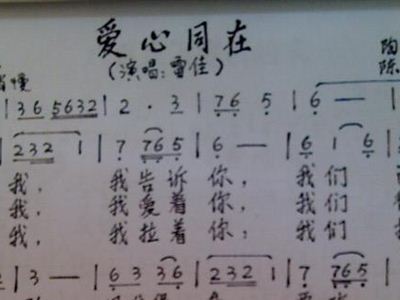 爱心同在
陶
(演唱:雷佳)
陈
慢
| 36 5632 | 2 · 3 | 76 5 | 6 — |
232 1 | 7 765 | 6 — | 6 1 6
我, 我告诉 你, 我们
我, 我爱着 你, 我们
我, 我拉着 你; 我们
| 3 — | 6 3 36 | 232 1 | 7 765 |